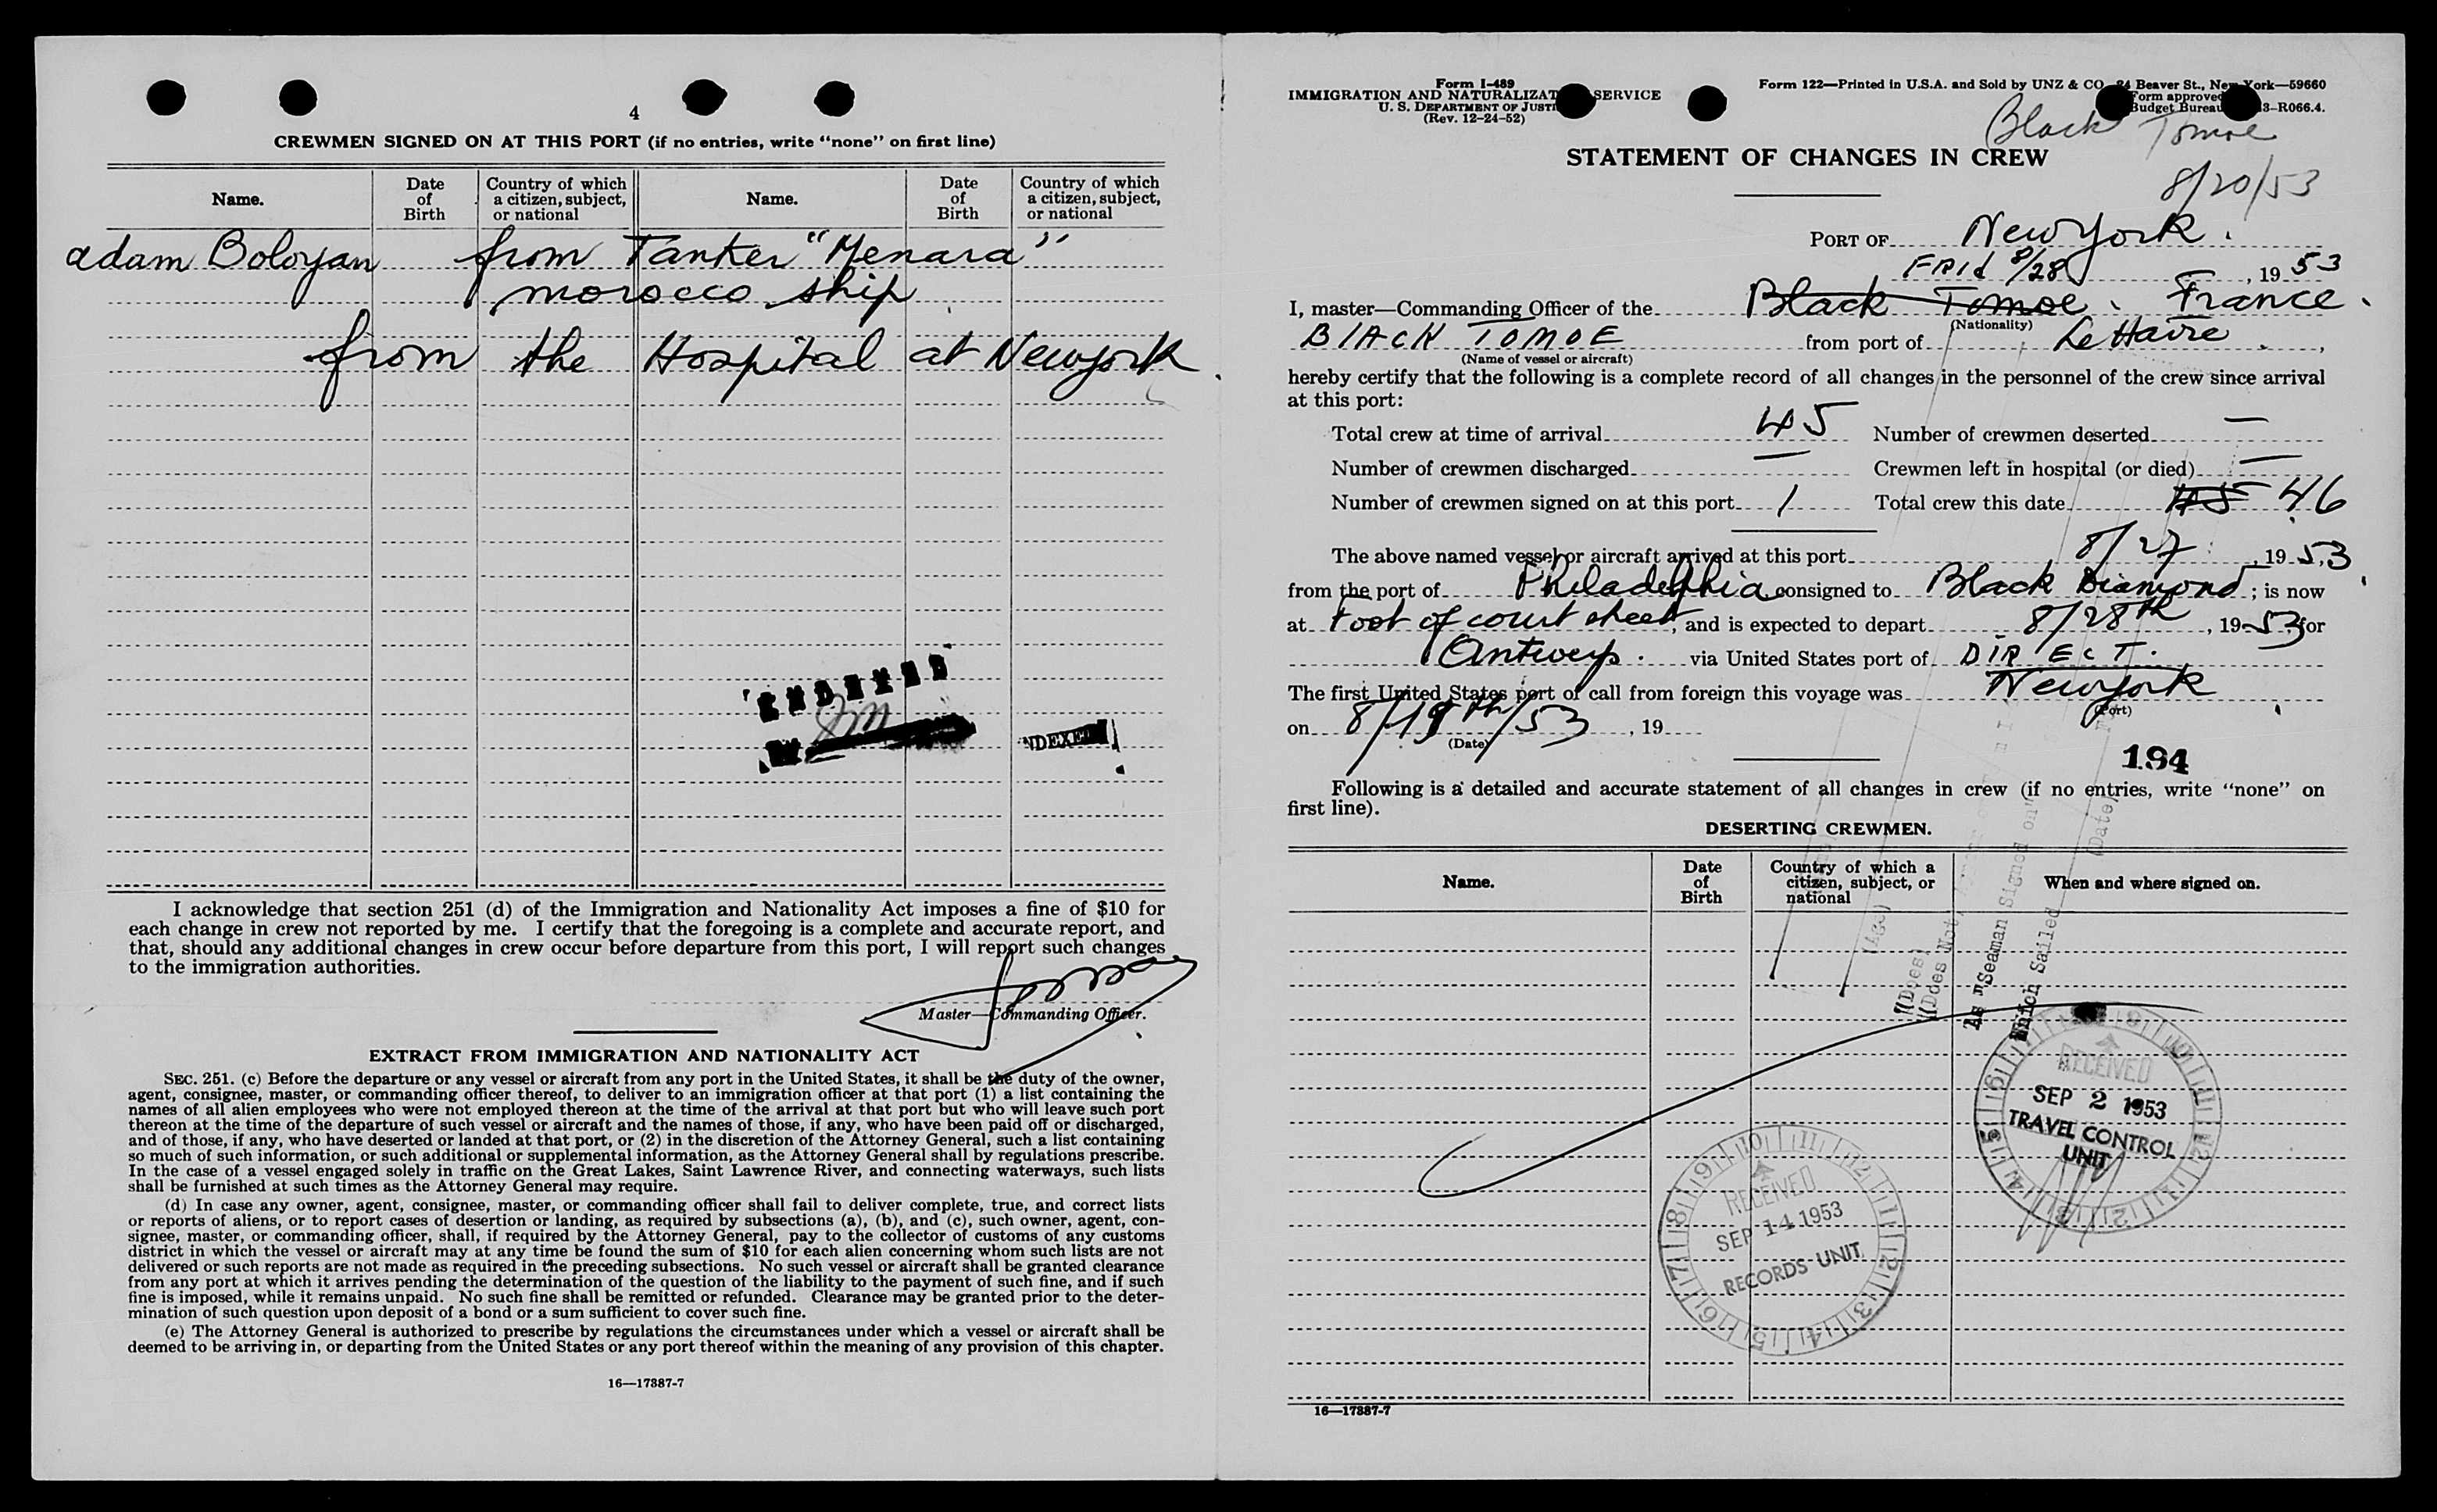 4
CREWMEN SIGNED ON AT THIS PORT (if no entries, write "none" on first line)
Name. Date of Birth Country of which a citizen, subject, or national Name. Date of Birth Country of which a citizen, subject, or national
adam Boloyan from Tanker "Menara"
morocco ship
from the Hospital at Newyork
INDEXED
NDEXED
I acknowledge that section 251 (d) of the Immigration and Nationality Act imposes a fine of $10 for
each change in crew not reported by me. I certify that the foregoing is a complete and accurate report, and
that, should any additional changes in crew occur before departure from this port, I will report such changes
to the immigration authorities.
Master—Commanding Officer.
EXTRACT FROM IMMIGRATION AND NATIONALITY ACT
SEC. 251. (c) Before the departure or any vessel or aircraft from any port in the United States, it shall be the duty of the owner,
agent, consignee, master, or commanding officer thereof, to deliver to an immigration officer at that port (1) a list containing the
names of all alien employees who were not employed thereon at the time of the arrival at that port but who will leave such port
thereon at the time of the departure of such vessel or aircraft and the names of those, if any, who have been paid off or discharged,
and of those, if any, who have deserted or landed at that port, or (2) in the discretion of the Attorney General, such a list containing
so much of such information, or such additional or supplemental information, as the Attorney General shall by regulations prescribe.
In the case of a vessel engaged solely in traffic on the Great Lakes, Saint Lawrence River, and connecting waterways, such lists
shall be furnished at such times as the Attorney General may require.
(d) In case any owner, agent, consignee, master, or commanding officer shall fail to deliver complete, true, and correct lists
or reports of aliens, or to report cases of desertion or landing, as required by subsections (a), (b), and (c), such owner, agent, con-
signee, master, or commanding officer, shall, if required by the Attorney General, pay to the collector of customs of any customs
district in which the vessel or aircraft may at any time be found the sum of $10 for each alien concerning whom such lists are not
delivered or such reports are not made as required in the preceding subsections. No such vessel or aircraft shall be granted clearance
from any port at which it arrives pending the determination of the question of the liability to the payment of such fine, and if such
fine is imposed, while it remains unpaid. No such fine shall be remitted or refunded. Clearance may be granted prior to the deter-
mination of such question upon deposit of a bond or a sum sufficient to cover such fine.
(e) The Attorney General is authorized to prescribe by regulations the circumstances under which a vessel or aircraft shall be
deemed to be arriving in, or departing from the United States or any port thereof within the meaning of any provision of this chapter.
16—17387-7
Form I-489
IMMIGRATION AND NATURALIZAT SERVICE
U. S. DEPARTMENT OF JUSTI
(Rev. 12-24-52)
Form 122—Printed in U.S.A. and Sold by UNZ & CO 24 Beaver St., New York—59660
Form approved
Budget Bureau 3-R066.4.
Black Tomoe
8/20/53
STATEMENT OF CHANGES IN CREW
PORT OF New York.
FRId 8/28, 19 53
I, master—Commanding Officer of the Black Tomoe. France.
(Nationality)
BLACK TOMOE from port of Le Havre.,
(Name of vessel or aircraft)
hereby certify that the following is a complete record of all changes in the personnel of the crew since arrival
at this port:
Total crew at time of arrival 45 Number of crewmen deserted —
Number of crewmen discharged — Crewmen left in hospital (or died) —
Number of crewmen signed on at this port 1 Total crew this date 45 46
The above named vessel or aircraft arrived at this port 8/27, 19 53
from the port of Philadelphia consigned to Black Diamond; is now
at Foot of court street, and is expected to depart 8/28th, 19 53 for
Antwerp. via United States port of DIRECT.
The first United States port of call from foreign this voyage was Newyork
(Port)
on 8/19th/53, 19
(Date)
194
Following is a detailed and accurate statement of all changes in crew (if no entries, write "none" on
first line).
DESERTING CREWMEN.
Name. Date of Birth Country of which a citizen, subject, or national When and where signed on.
(Age)
(Does)
(Does Not
As "Seaman Signed on"
Which Sailed
(Date)
RECEIVED
SEP 2 1953
TRAVEL CONTROL
UNIT
RECEIVED
SEP 14 1953
RECORDS UNIT
16—17387-7